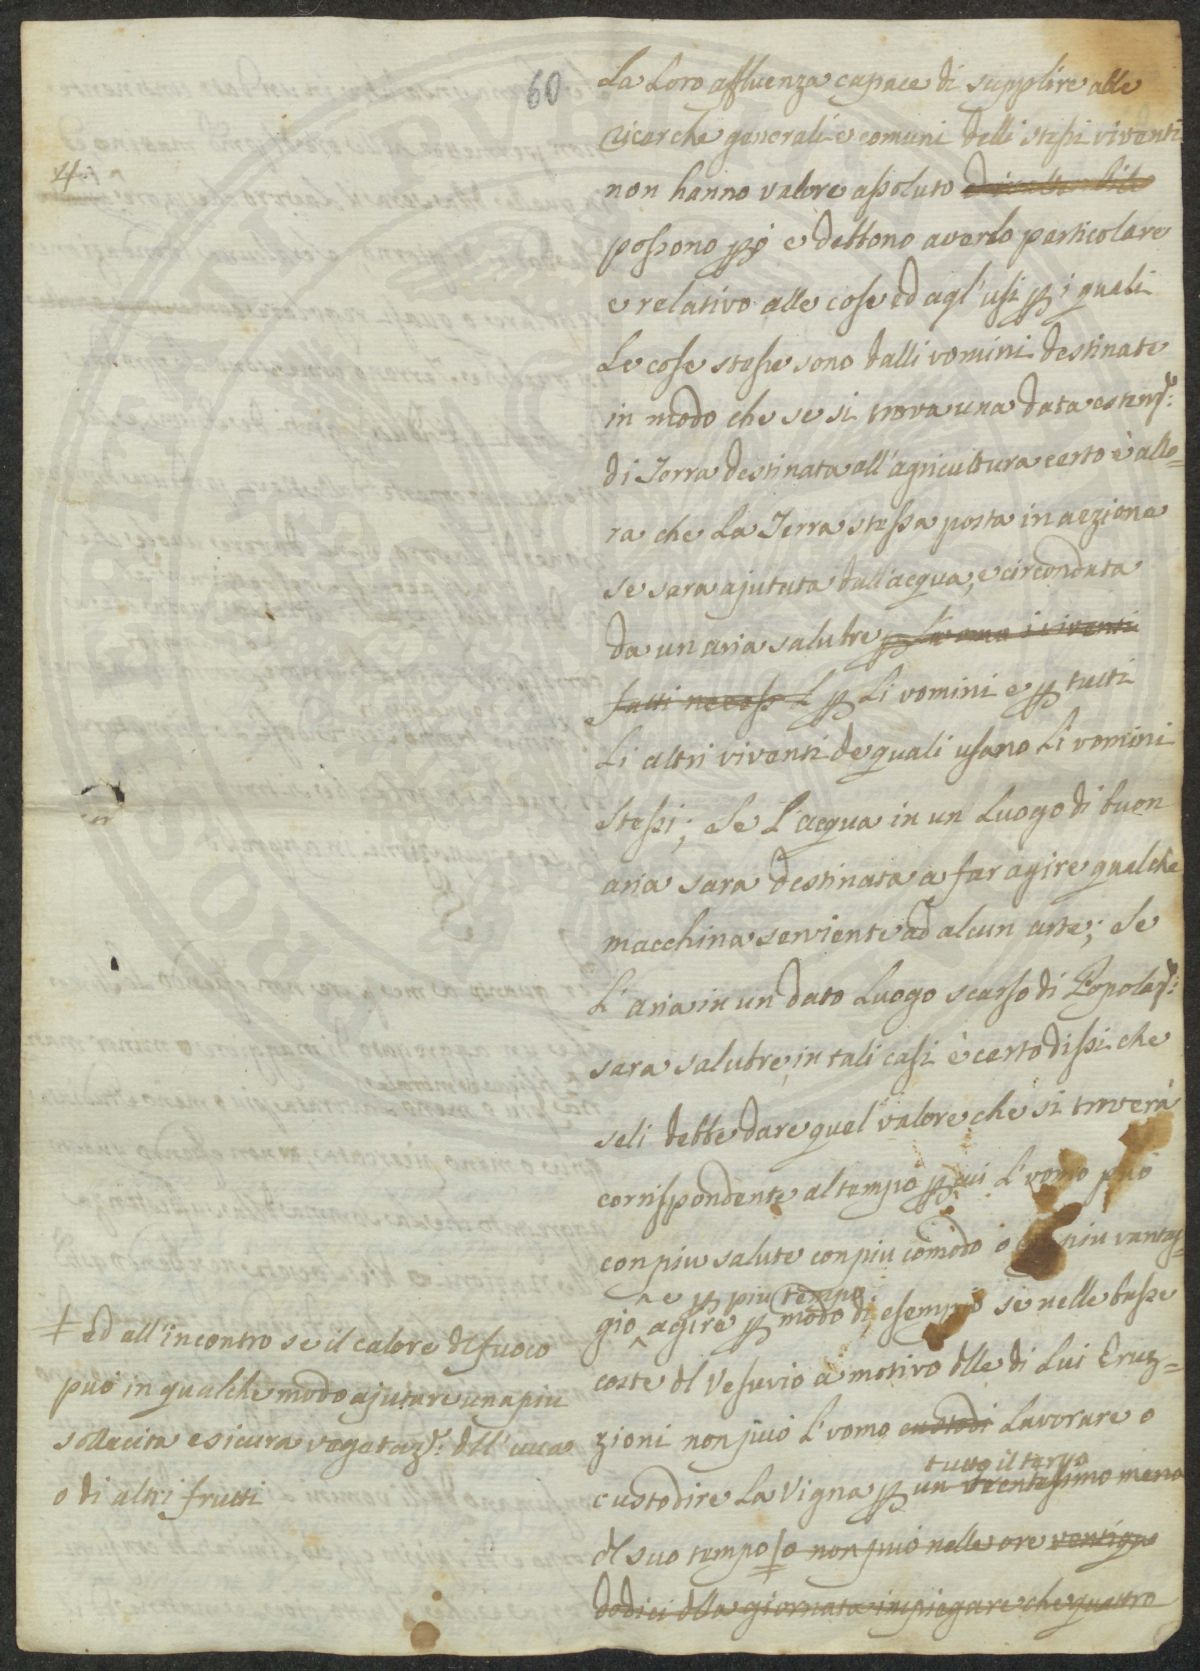 60
14.
La Loro affluenza capace di supplire alle
ricerche generali e comuni delli stessi viventi
non hanno valore assoluto
possono pò e debbono averlo particolare
e relativo alle cose ed agl'usi p i quali
Le cose stesse sono dalli uomini destinate
in modo che se si trova una data estense:
di Terra destinata all'agricultura certo è allo=
ra che La Terra stessa posta in aczione
se sara ajutata dall'acqua, e circondata
da un aria salubre p i viventi
fatti necess L p Li uomini e p tutti
Li altri viventi de quali usano Li uomini
stessi; Se L'acqua in un Luogo di buon
aria sara destinata a far agire qualche
macchina serviente ad alcun arte; Se
L'aria in un dato Luogo scarso di Popolaze:
sara salubre, in tali casi è certo dissi che
seli debbe dare quel valore che si troverà
corrispondente al tempo p cui L'uomo può
con piu salute con piu comodo o piu vantag=
e p piu tempo
gio agire p modo di esempio se nelle basse
coste dl Vesuvio a motivo dlle di Lui Eruz=
zioni non può L'uomo custodi Lavorare o
tutto il terzo
custodire La Vigna p un trentessimo meno
dl suo tempo ‡ o non può nelle ore
dodici dlla giornata impiegare che quattro
‡ ed all'incontro se il calore dl fuoco
può in qualche modo ajutare una piu
sollecita e sicura vegetaze: dll'uua
o di altri frutti